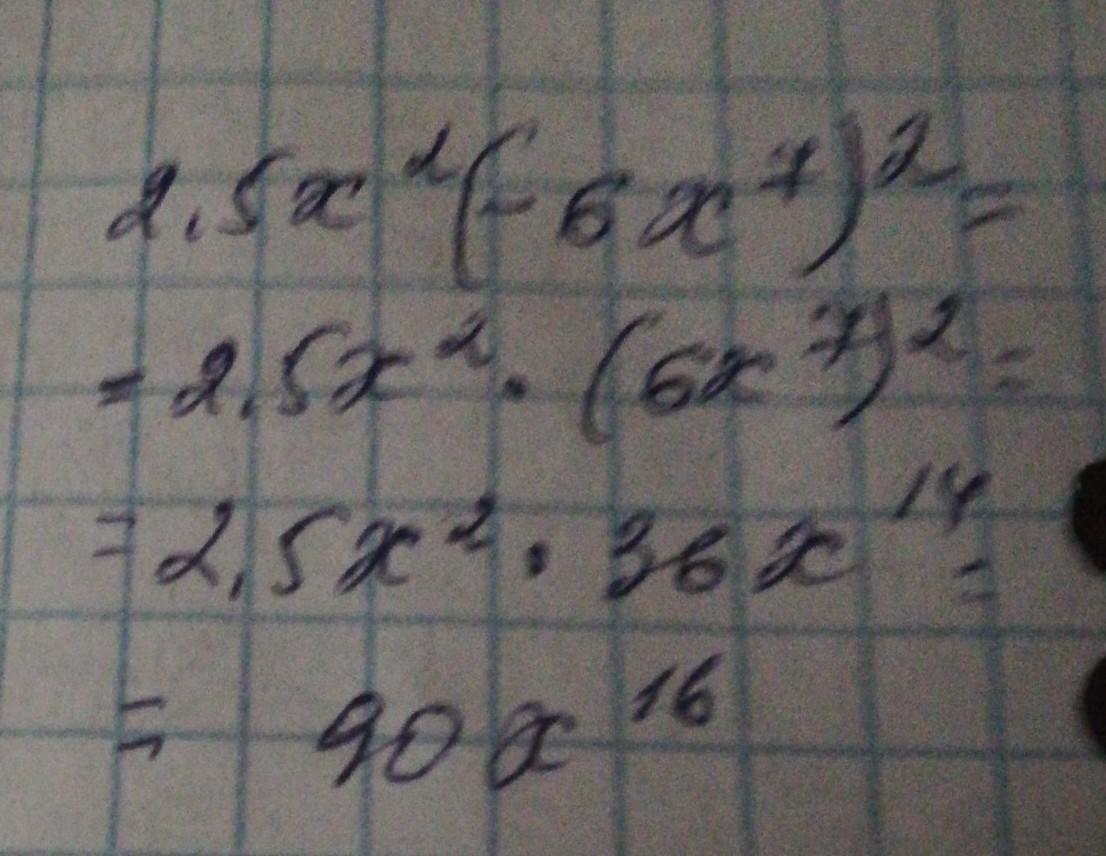 2,5x²(-6x⁷)²=
=2,5x²·(6x⁷)²=
=2,5x²·36x¹⁴=
=90x¹⁶